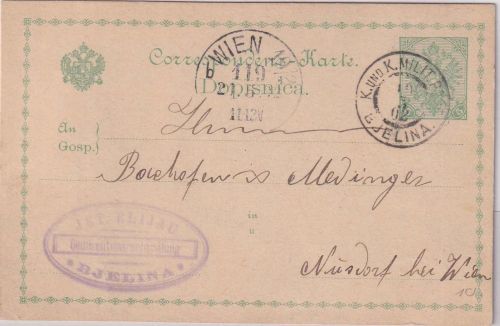 Correspondenz-Karte.
Dopisnica.
WIEN
119
21.5
11.12V
K. UND K. MILIT.
19
5
02
BJELINA
An
Gosp.
Herrn
Bachofen & Medinger
in
u
Nusdorf bei Wien
JSK. ELIJAU
BJELINA
10